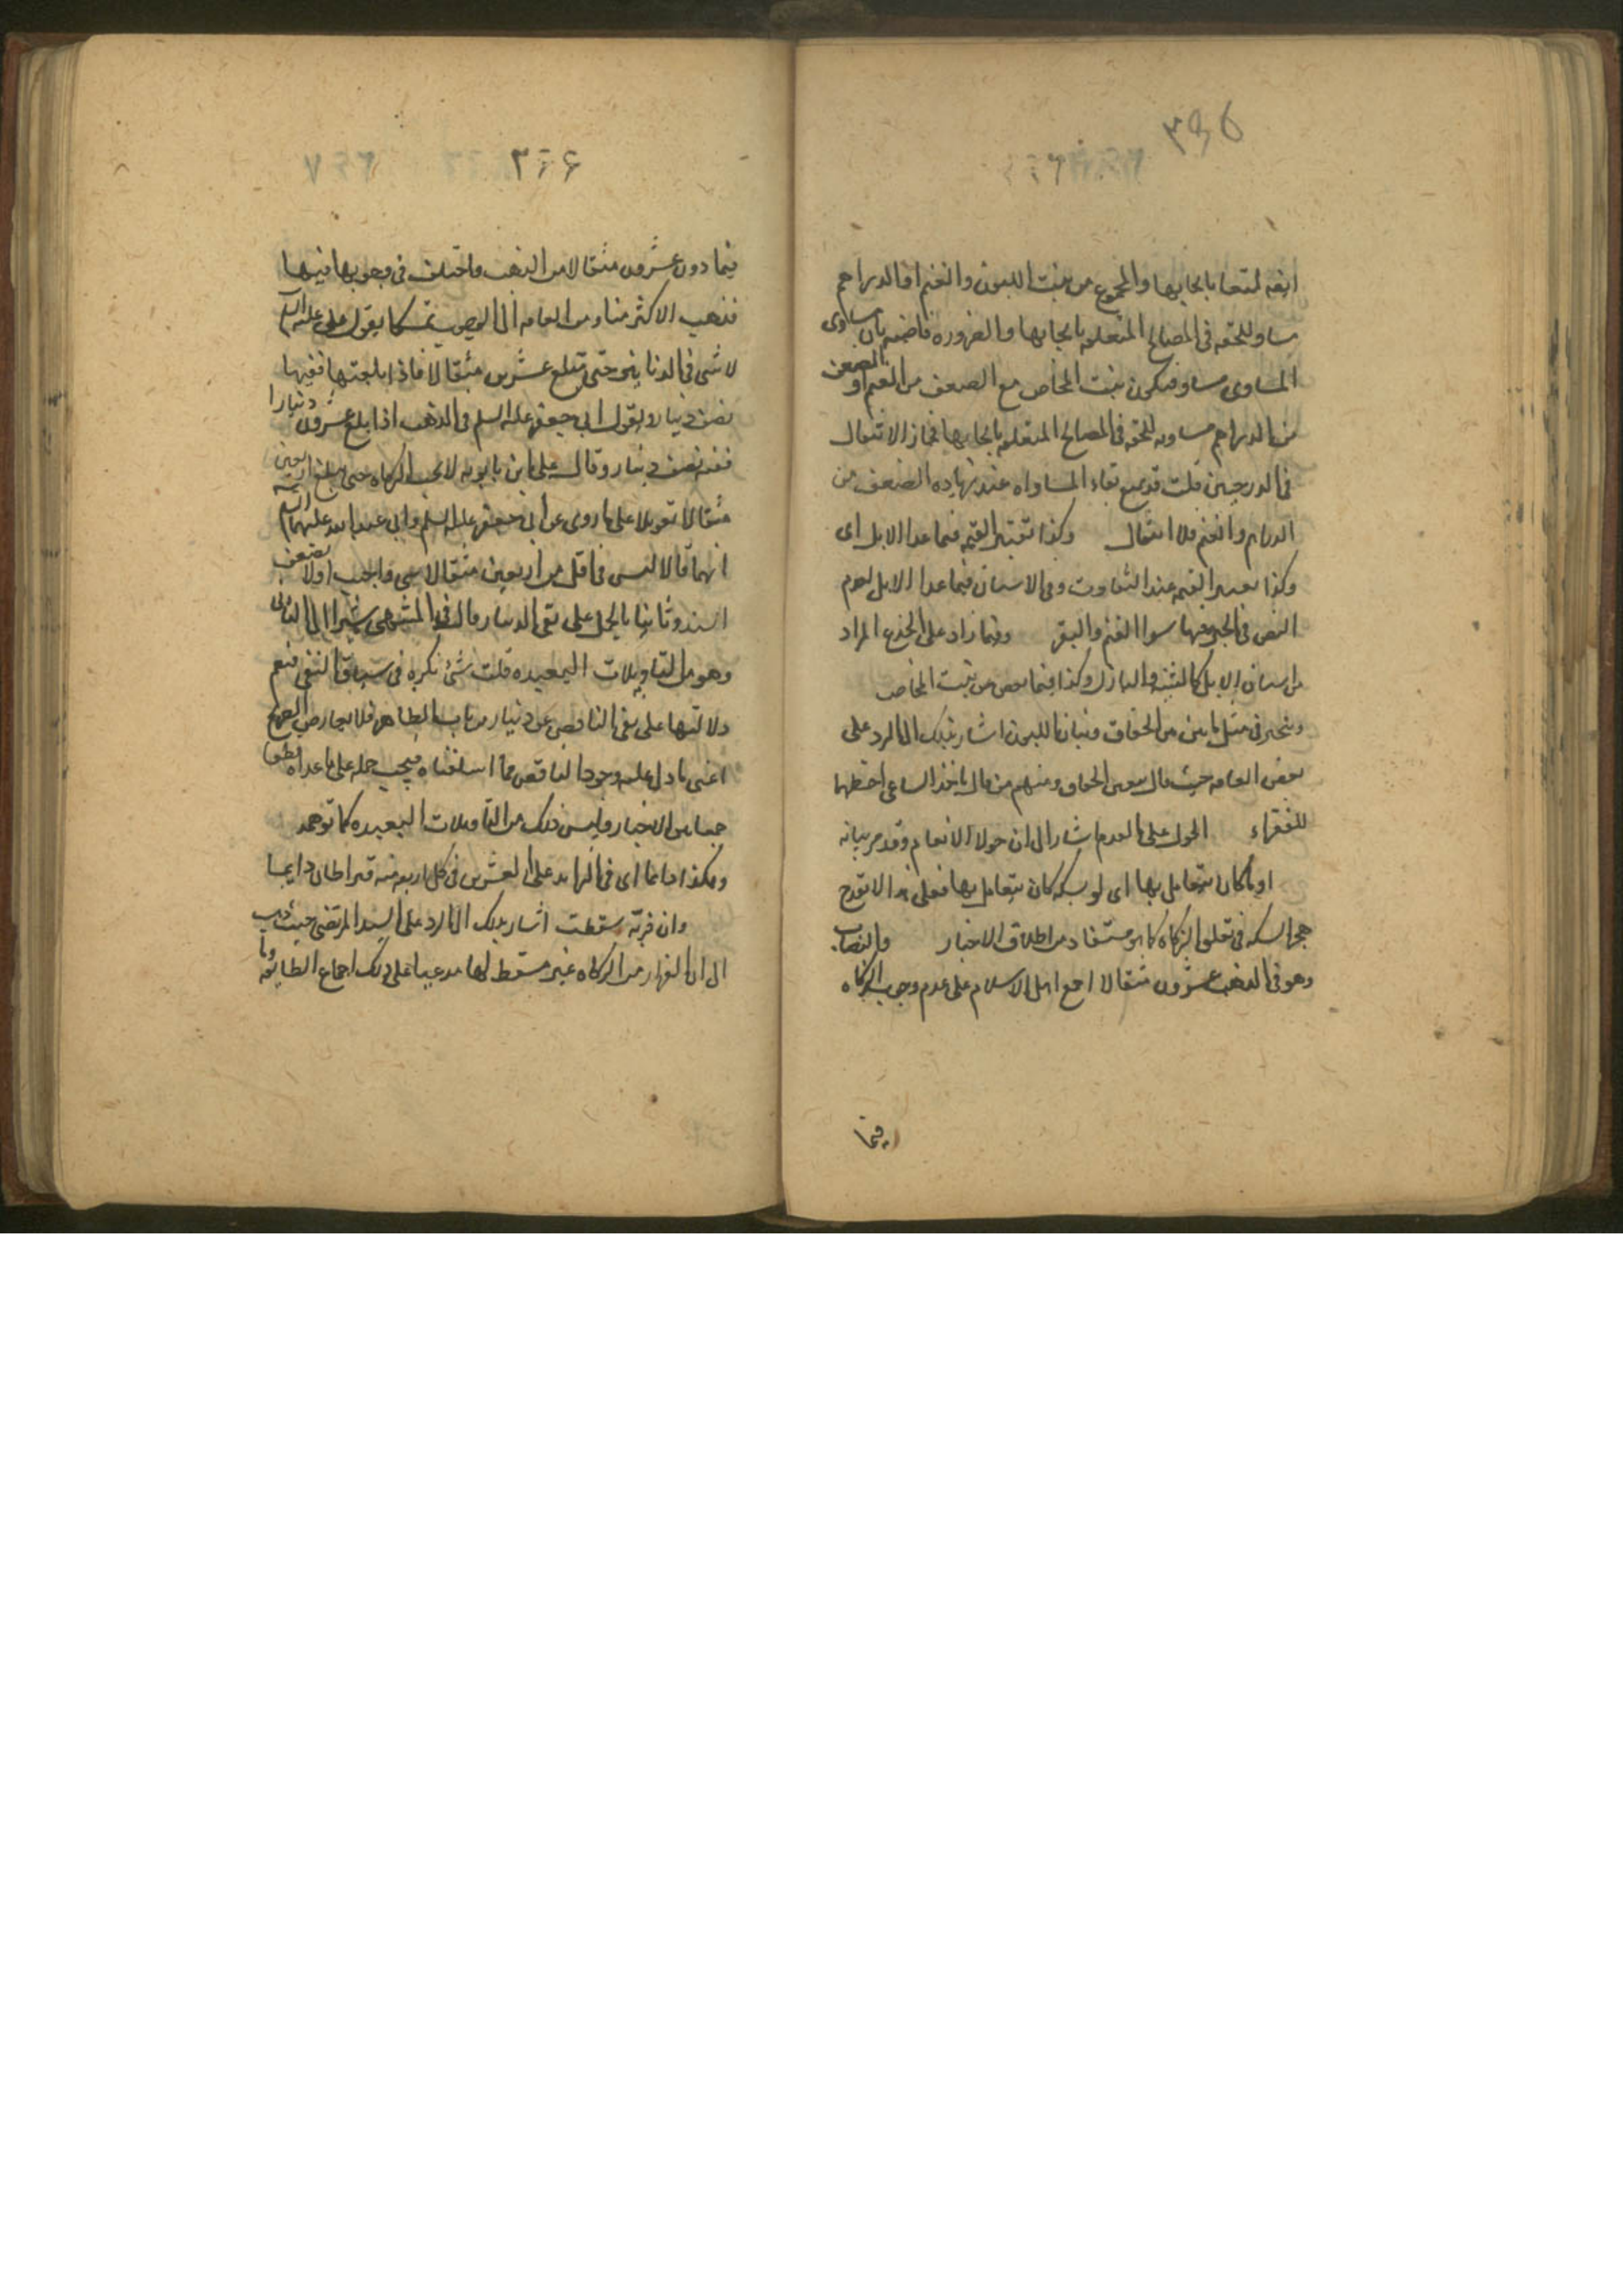 والمجموع من بنت اللبون والغنم او الدراهم
مساو للحقه فى المصالح المتعلقه بايجابها والضروره قاضيه بان مساوى
المساوى مساو فيكون بنت المخاض مع الضعف من الغنم او الضعف
من الدراهم مساويه للحقه فى المصالح المتعلقه بايجابها فجاز الانتقال
فى الدرجتين قلت قد يمنع بقاء المساواه عند زياده الضعف من
الدراهم والغنم فلا انتقال وكذا تعتبر القيمه فيما عدا الابل اى
وكذا تعتبر القيمه عند التفاوت فى الاسنان فيما عدا الابل لعدم
النص فى سوا الغنم والبقر وفيما زاد على الجذع المراد
من اسنان الابل كالثنيه والبازل وكذا فيما نقص من بنت المخاض
ويتخير فى مثل مائتين من الحقاق وبنات اللبون اشار بذلك الى الرد على
بعض العامه حيث قال بتعين الحقاق ومنهم من قال ياخذ الساعى احظهما
للفقراء الحول على اشار الى ان حول الانعام وقد مر بيانه
او ما كان يتعامل بها اى لو بسكه كان يتعامل بها فعلى هذا لا يقدح
هجر السكه فى تعلق الزكاه كما هو مستفاد من اطلاق الاخبار والنصاب
وهو فى الذهب عشرون مثقالا اجمع اهل الاسلام على عدم وجوب الزكاه
فيما
٢٦٦
فيما دون عشرون مثقالا من الذهب واختلف فى وجوبها فيها
فذهب الاكثر منا ومن العامه الى الوجوب تمسكا بقول على عليه السلم
لا شى فى الدنانير حتى تبلغ عشرين مثقالا فاذا بلغتها ففيها
نصف دينار وبقول ابى جعفر عليه السلم فى الذهب اذا بلغ عشرون دينارا
ففيه نصف دينار وقال على ابن بابويه لا يجب الزكاه حتى يبلغ اربعين
مثقالا تعويلا على ما روى عن ابى جعفر عليه السلم وابى عبد الله عليهما السلم
انهما قالا ليس فى اقل من اربعين مثقالا شى واجيب اولا بضعف
السند وثانيا بالحمل على نفى الدينار قال فى المنتهى مشيرا الى الثانى
وهو من التاويلات البعيده قلت شئ نكره فى سياق النفى فتعم
دلالتها على نفى الناقص عن دينار من باب الظاهر فلا يعارض الصريح
اعنى ما دل على وجود الناقص مما اسلفناه فيجب حمله على ما عداه
جمعا بين الاخبار وليس ذلك من التاويلات البعيده كما توهمه
وهكذا دائما اى فى الزايد على العشرين فى كل اربعه منه قيراطان دايما
وان فربه سقطت اشار بذلك الى الرد على السيد المرتضى حيث ذهب
الى ان الفرار من الزكاه غير مسقط لها مدعيا على ذلك اجماع الطايفه